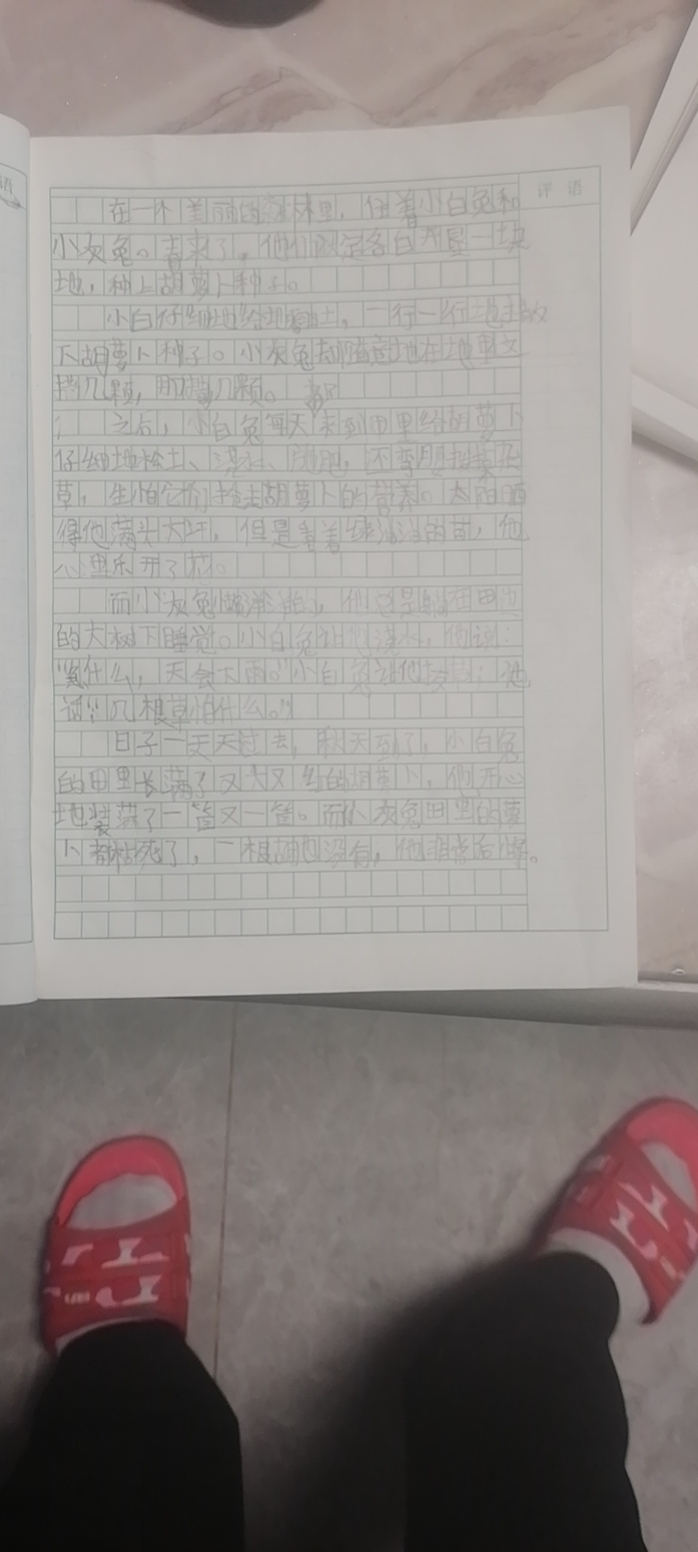 评语
在一个美丽的森林里，住着小白兔和
小灰兔。春来了，他们决定各自开垦一块
地，种上胡萝卜种子。
小白仔细地给地翻土，一行一行地播
下胡萝卜种子。小灰兔却随意地在地里
几颗，那几颗。
之后，小白兔每天来到田里给胡萝卜
仔细地松土、浇水、施肥，不弯腰拔杂
草，生怕它们抢去胡萝卜的营养。太阳晒
得他满头大汗，但是看着绿油油的苗，他
心里乐开了花。
而小灰兔懒洋洋，他总是躺在田边
的大树下睡觉。小白兔让他浇水，他说：
“急什么，天会下雨。”小白兔让他拔草；他
说“几根草怕什么。”
日子一天天过去，秋天到了，小白兔
的田里长满了又大又红的胡萝卜，他开心
地装满了一筐又一筐。而小灰兔田里的萝
卜都枯死了，一根也没有，他非常后悔。